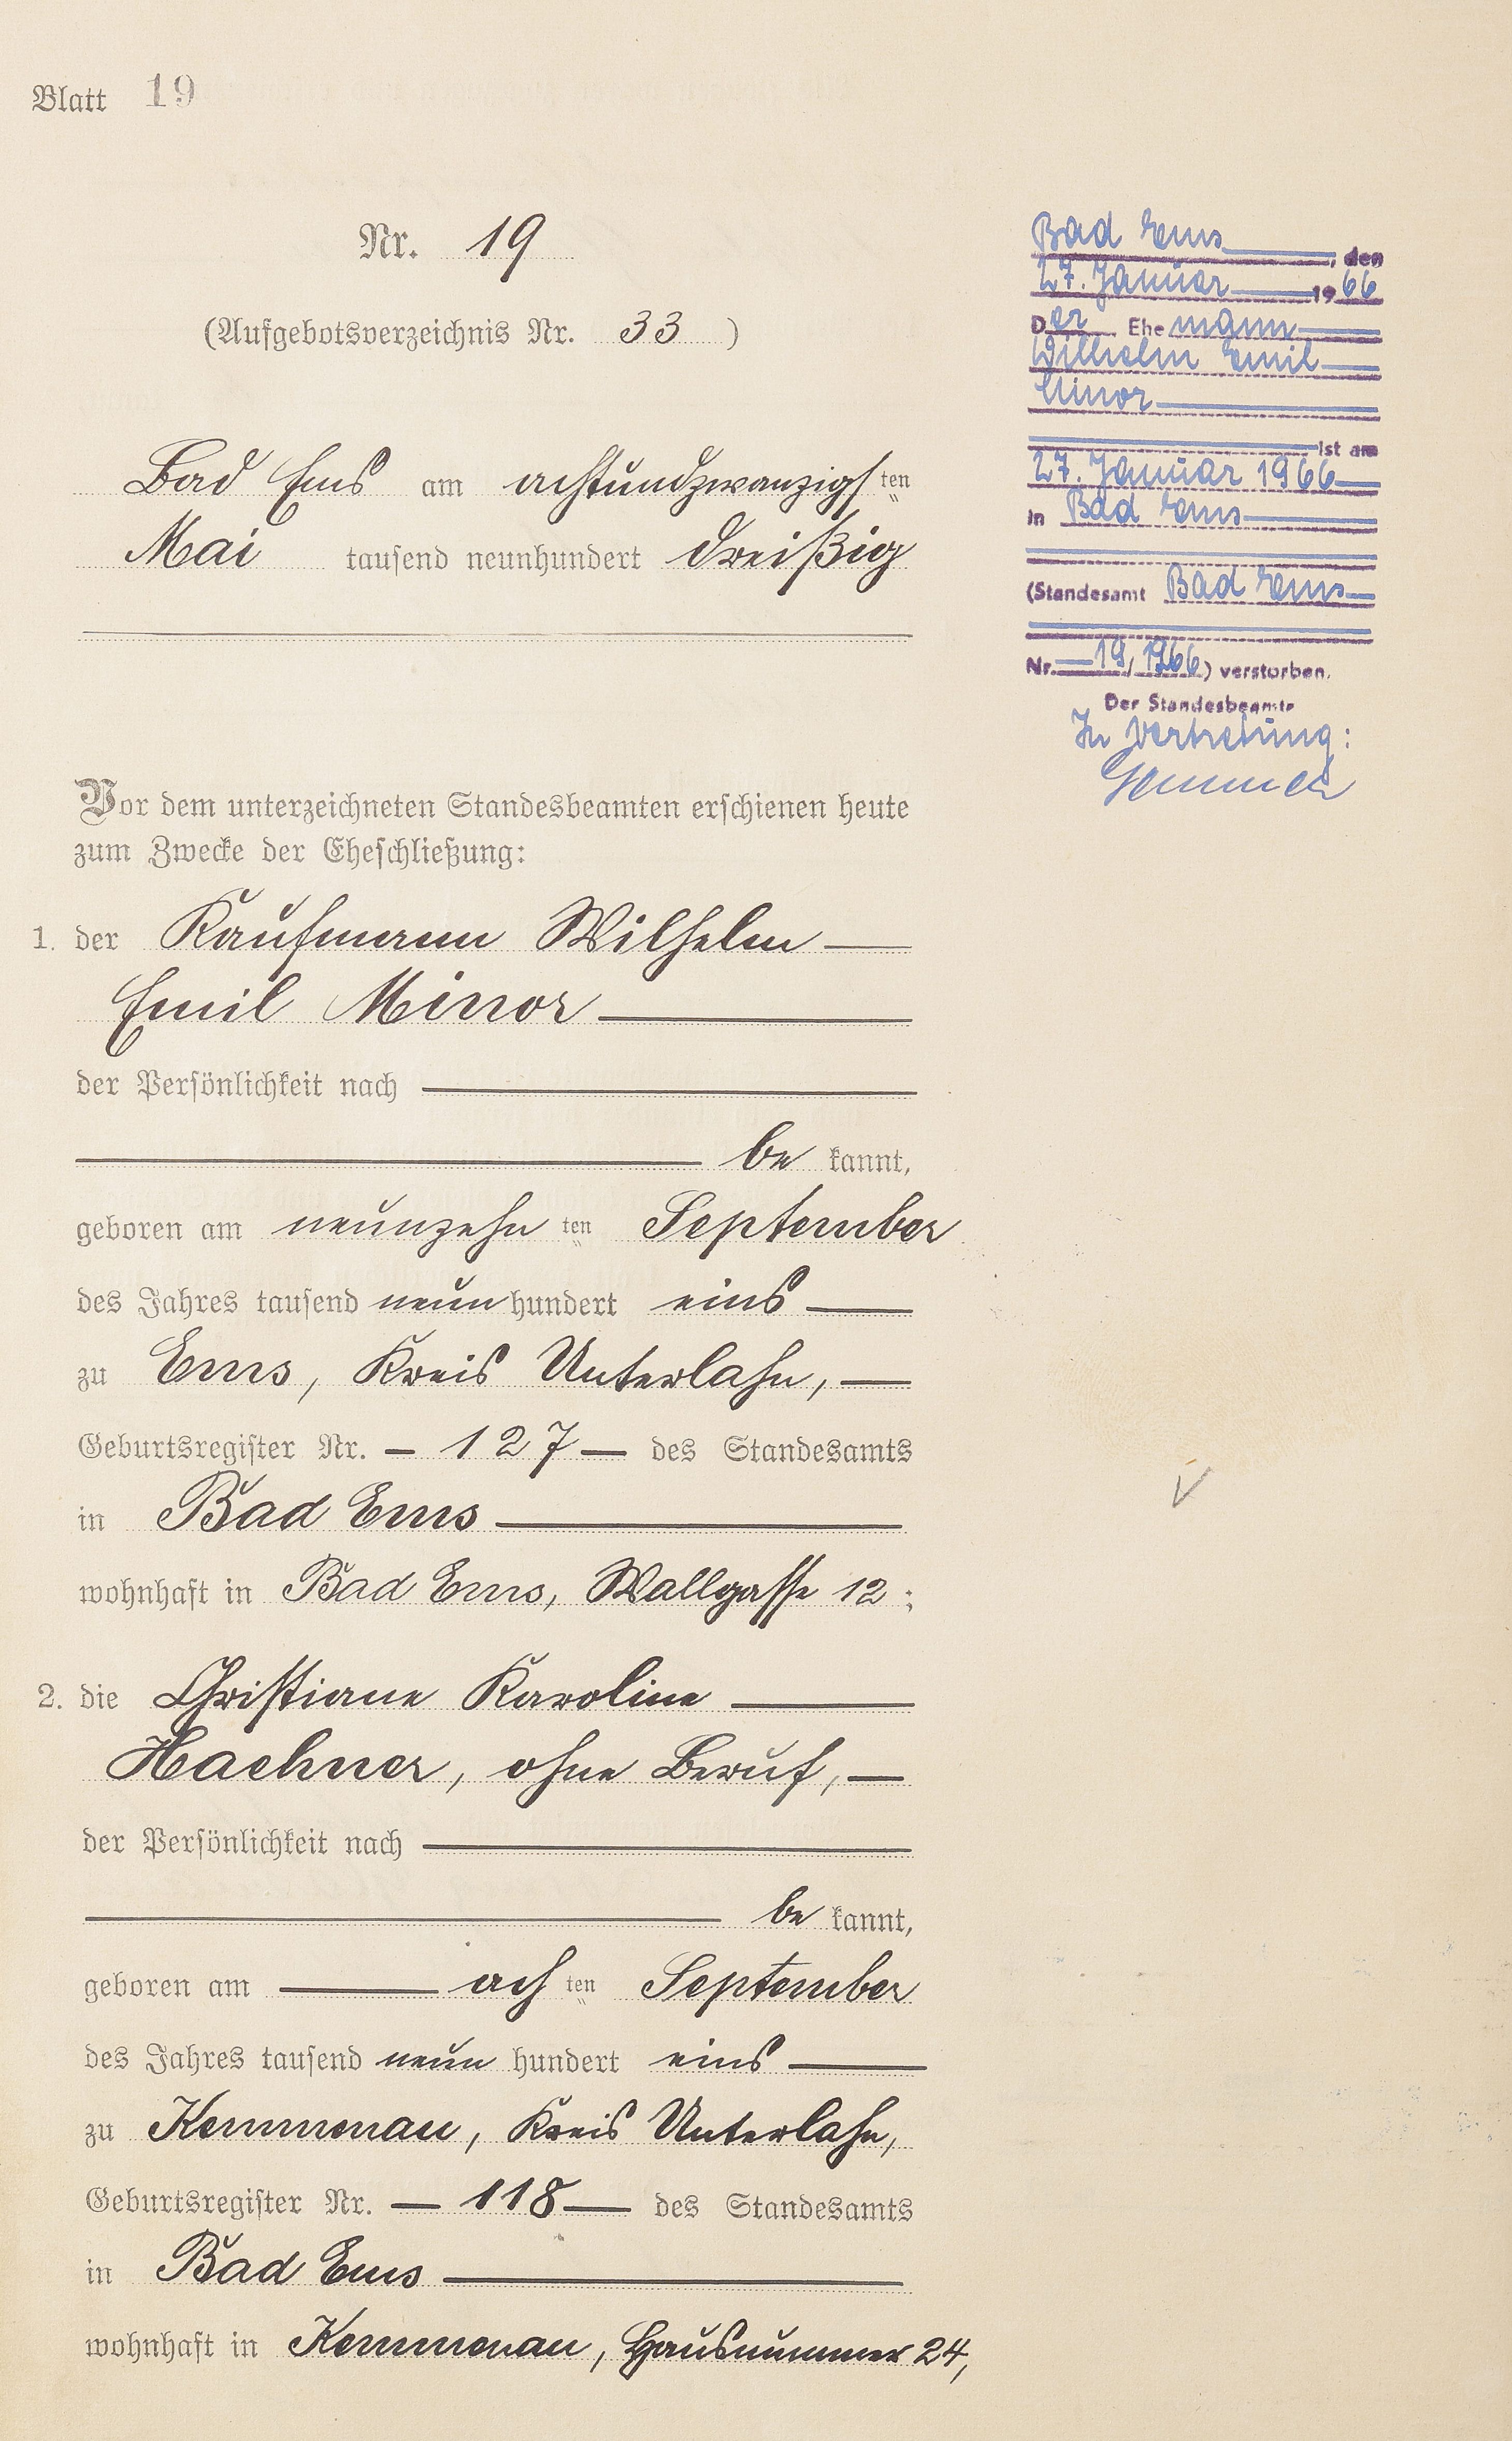 Blatt 19
Nr. 19
(Aufgebotsverzeichnis Nr. 33)
Bad Ems am achtundzwanzigsten
Mai tausend neunhundert dreißig
Vor dem unterzeichneten Standesbeamten erschienen heute
zum Zwecke der Eheschließung:
1. der Kaufmann Wilhelm
Emil Minor
der Persönlichkeit nach
be kannt,
geboren am neunzehn ten September
des Jahres tausend neun hundert eins
zu Ems, Kreis Unterlahn,
Geburtsregister Nr. 127 des Standesamts
in Bad Ems
wohnhaft in Bad Ems, Wallgasse 12;
2. die Christiane Karoline
Haehner, ohne Beruf,
der Persönlichkeit nach
be kannt,
geboren am ach ten September
des Jahres tausend neun hundert eins
zu Kemmenau, Kreis Unterlahn,
Geburtsregister Nr. 118 des Standesamts
in Bad Ems
wohnhaft in Kemmenau, Hausnummer 24,
Bad Ems, den
27. Januar 1966
Der Ehemann
Wilhelm Emil
Minor
ist am
27. Januar 1966
in Bad Ems
(Standesamt Bad Ems
Nr. 19/1966) verstorben.
Der Standesbeamte
In Vertretung: